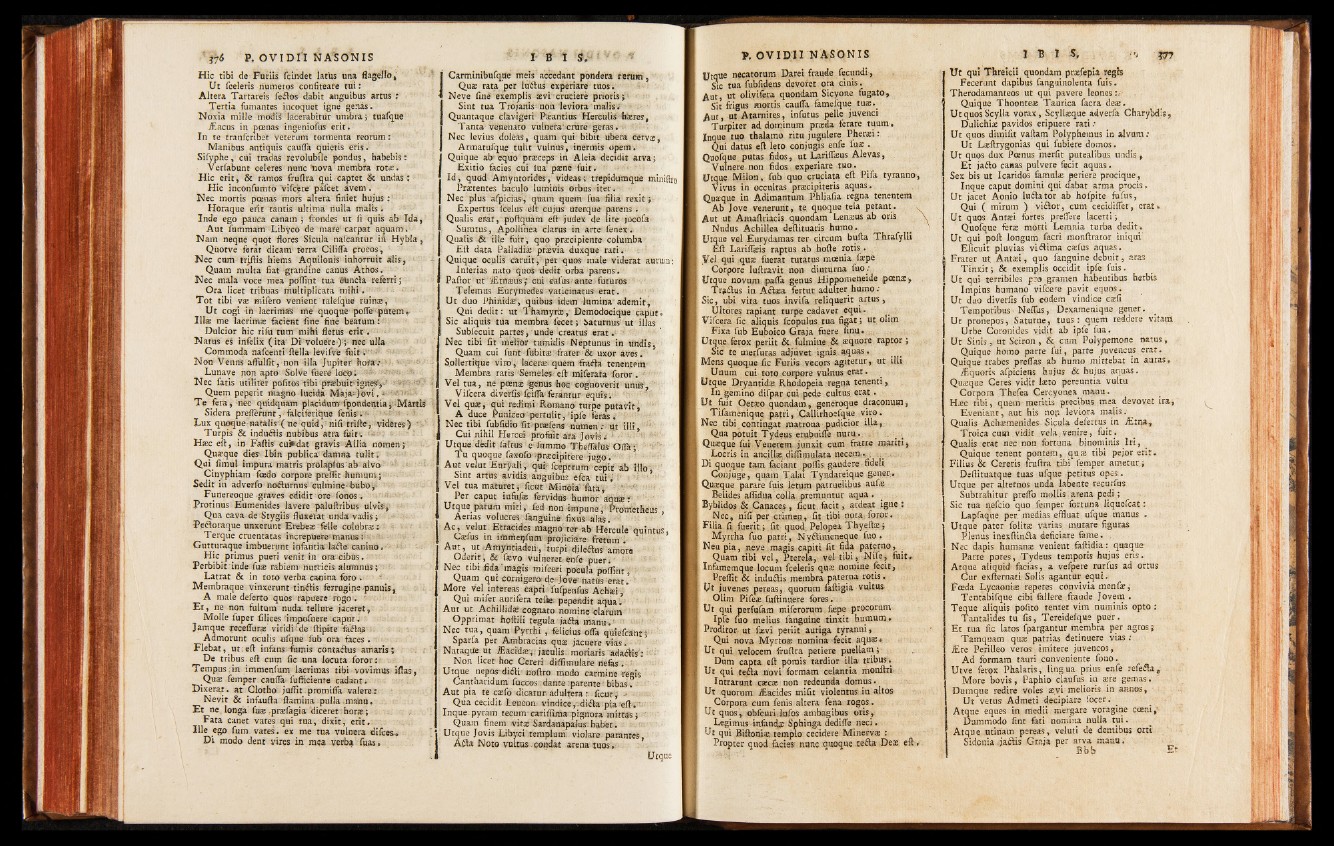 376 P. OVIDII NASONIS
Hic tibi de Furiis scindet latus una flagello,
Ut sceleris numeros confiteare tui:
Altera Tartareis sectos dabit anguibus artus:
Tertia fumantes incoquet igne genas.
Noxia mille modis lacerabitur umbra; tuasque
Æacus in pœnas ingeniosus erit.
In te transcribet veterum tormenta reorum:
Manibus antiquis caussa quietis eris.
Sisyphe, cui tradas revolubile pondus, habebis:
Versabunt celeres nunc nova membra rotæ.
Hic erit, & ramos frustra qui captet & undas:
Hic inconsumto viscere pascet avem.
Nec mortis pœnas mors altera finiet hujus:
Horaque erit tantis ultima nulla malis.
Inde ego pauca canam; frondes ut si quis ab Ida,
Aut summam Libyco de mare carpat aquam.
Nam neque quot flores Sicula nascantur in Hybla,
Quotve ferat dicam terra Cilissa crocos,
Nec cum tristis hiems Aquilonis inhorruit alis,
Quam multa fiat grandine canus Athos.
Nec mala voce mea possint tua cuncta referri;
Ora licet tribuas multiplicata mihi.
Tot tibi væ misero venient talesque ruinæ,
Ut cogi in lacrimas me quoque posse putem.
Illæ me lacrimæ facient sine fine beatum:
Dulcior hic risu tum mihi fletus erit.
Natus es infelix (ita Di voluere); nec ulla
Commoda nascenti stella levisve fuit.
Non Venus affulsit, non illa Jupiter hora:
Lunave non apto Solve fuere loco.
Nec satis utiliter positos tibi præbuit ignes,
Quem peperit magno lucida Maja Jovi.
Te fera, nec quidquam placidum spondentia, Martis
Sidera presserunt, falciferique senis.
Lux quoque natalis (ne quid, nisi triste, videres)
Turpis & inductis nubibus atra fuit.
Hæc est, in Fastis cui dat gravis Allia nomen;
Quæque dies Ibin publica damna tulit.
Qui simul impura matris prolapsus ab alvo
Cinyphiam fœdo corpore pressit humum;
Sedit in adverso nocturnus culmine bubo,
Funereoque graves edidit ore sonos.
Protinus Eumenides lavere palustribus ulvis,
Qua cava de Stygiis fluxerat unda vadis;
Pectoraque unxerunt Erebeæ felle colubræ:
Terque cruentatas increpuere manus:
Gutturaque imbuerunt infantia lacte canino.
Hic primus pueri venit in ora cibus.
Perbibit inde suæ rabiem nutricis alumnus;
Latrat & in toto verba canina foro.
Membraque vinxerunt tinctis ferrugine pannis,
A male deserto quos rapuere rogo.
Et, ne non fultum nuda tellure jaceret,
Molle super silices imposuere caput.
Jamque recessuræ viridi de stipite factas
Admorunt oculis usque sub ora faces.
Flebat, ut est infans fumis contactus amaris;
De tribus est cum sic una locuta soror:
Tempus in immensum lacrimas tibi vovimus istas,
Quæ semper caussa sufficiente cadant.
Dixerat. at Clotho jussit promissa valere:
Nevit & infausta stamina pulla manu.
Et ne longa suæ præsagia diceret horæ;
Fata canet vates qui tua, dixit, erit.
Ille ego sum vates. ex me tua vulnera disces.
Di modo dent vires in mea verba suas.
I B I S.
Carminibusque meis accedant pondera rerum,
Quæ rata per luctus experiare tuos.
Neve sine exemplis ævi cruciere prioris;
Sint tua Trojanis non leviora malis.
Quantaque clavigeri Pœantius Herculis hæres,
Tanta venenato vulnera crure geras.
Nec levius doleas, quam qui bibit ubera cervæ,
Armatusque tulit vulnus, inermis opem.
Quique ab equo præceps in Aleia decidit arva;
Exitio facies cui sua pæne fuit.
Id, quod Amyntorides, videas: trepidumque ministro
Prætentes baculo luminis orbus iter.
Nec plus aspicias, quam quem sua filia rexit;
Expertus scelus est cujus uterque parens.
Qualis erat, postquam est judex de lite jocosa
Sumtus, Apollinea clarus in arte senex.
Qualis & ille fuit, quo præcipiente columba
Est data Palladiæ prævia duxque rati.
Quique oculis caruit, per quos male viderat aurum:
Inferias nato quos dedit orba parens.
Pastor ut Ætnæus; cui casus ante futuros
Telemus Eurymedes vaticinatus erat.
Ut duo Phinidæ, quibus idem lumina ademit,
Qui dedit: ut Thamyræ, Demodocique caput.
Sic aliquis tua membra secet; Saturnus ut illas
Subsecuit partes, unde creatus erat.
Nec tibi sit melior tumidis Neptunus in undis,
Quam cui sunt subitæ frater & uxor aves.
Sollertique viro, laceræ quem fracta tenentem
Membra ratis Semeles est miserata soror.
Vel tua, ne pœnæ genus hoc cognoverit unus,
Viscera diversis scissa ferantur equis.
Vel quæ, qui redimi Romano turpe putavit,
A duce Puniceo pertulit, ipse feras.
Nec tibi subsidio sit præsens numen: ut illi,
Cui nihil Hercei profuit ara Jovis.
Utque dedit saltus e summo Thessalus Ossa;
Tu quoque saxoso præcipitere jugo.
Aut velut Euryali, qui sceptrum cepit ab illo,
Sint artus avidis anguibus esca tui.
Vel tua maturet, sicut Minoïa fata,
Per caput infusæ fervidus humor aquæ:
Utque parum miti, sed non impune, Prometheus,
Aerias volucres sanguine fixus alas.
Ac, velut Etracides magno ter ab Hercule quintus,
Cæsus in immensum projiciare fretum.
Aut, ut Amyntiaden, turpi dilectus amore
Oderit, & sævo vulneret ense puer.
Nec tibi fida magis misceri pocula possint,
Quam qui cornigero de Jove natus erat.
More vel intereas capti suspensus Achæi,
Qui miser aurifera teste pependit aqua.
Aut ut Achillidæ cognato nomine clarum
Opprimat hostili tegula jacta manu.
Nec tua, quam Pyrrhi, felicius ossa quiescant;
Sparsa per Ambracias quæ jacuere vias.
Nataque ut Æacidæ, jaculis moriaris adactis:
Non licet hoc Cereri dissimulare nefas.
Utque nepos dicti nostro modo carmine regis
Cantharidum succos dante parente bibas.
Aut pia te cæso dicatur adultera: sicut,
Qua cecidit Leucon vindice, dicta pia est.
Inque pyram tecum carissima pignora mittas;
Quam finem vitæ Sardanapalus habet.
Utque Jovis Libyci templum violare parantes,
Acta Noto vultus condat arena tuos.
Utque
P. OVIDII NASONIS
Utque necatorum Darei fraude secundi,
Sic tua subsidens devoret ora cinis.
Aut, ut olivifera quondam Sicyone fugato,
Sit frigus mortis caussa, famesque tuæ.
Aut, ut Atarnites, insutus pelle juvenci
Turpiter ad dominum præda ferare tuum.
Inque tuo thalamo ritu jugulere Pheræi:
Qui datus est leto conjugis ense suæ.
Quosque putas fidos, ut Larissæus Alevas,
Vulnere non fidos experiare tuo.
Utque Milon, sub quo cruciata est Pisa tyranno,
Vivus in occultas præcipiteris aquas.
Quæque in Adimantum Phliasia regna tenentem
Ab Jove venerunt, te quoque tela petant.
Aut ut Amastriacis quondam Lenæus ab oris
Nudus Achillea destituaris humo.
Utque vel Eurydamas ter circum busta Thrasylli
Est Larissæis raptus ab hoste rotis.
Vel qui quæ fuerat tutatus mœnia sæpe
Corpore lustravit non diuturna suo:
Utque novum passa genus Hippomeneide pœnæ,
Tractus in Actæa fertur adulter humo:
Sic, ubi vita tuos invisa reliquerit artus,
Ultores rapiant turpe cadaver equi.
Viscera sic aliquis scopulus tua figat; ut olim
Fixa sub Euboico Graja fuere sinu.
Utque ferox periit & fulmine & æquore raptor;
Sic te mersuras adjuvet ignis aquas.
Mens quoque sic Furiis vecors agitetur, ut illi
Unum cui toto corpore vulnus erat.
Utque Dryantidæ Rhodopeia regna tenenti,
In gemino dispar cui pede cultus erat.
Ut fuit Oetæo quondam, generoque draconum,
Tisamenique patri, Callirhoesque viro.
Nec tibi contingat matrona pudicior illa,
Qua potuit Tydeus erubuisse nuru.
Quæque sui Venerem junxit cum fratre mariti,
Locris in ancillæ dissimulata necem.
Di quoque tam faciant possis gaudere fideli
Conjuge, quam Talai Tyndareique gener.
Quæque parare suis letum patruelibus ausæ
Belides assidua colla premuntur aqua.
Byblidos & Canaces, sicut facit, ardeat igne:
Nec, nisi per crimen, sit tibi nota soror.
Filia si fuerit; sit quod Pelopea Thyestæ;
Myrrha suo patri, Nyctimeneque suo.
Neu pia, neve magis capiti sit fida paterno,
Quam tibi vel, Pterela, vel tibi, Nise, fuit.
Infamemque locum sceleris quæ nomine fecit,
Pressit & inductis membra paterna rotis.
Ut juvenes pereas, quorum fastigia vultus
Olim Pisææ sustinuere fores.
Ut qui perfusam miserorum sæpe procorum
Ipse suo melius sanguine tinxit humum.
Proditor ut sævi periit auriga tyranni,
Qui nova Myrtoæ nomina fecit aquæ.
Ut qui velocem frustra petiere puellam;
Dum capta est pomis tardior illa tribus.
Ut qui tecta novi formam celantia monstri
Intrarunt cæcæ non redeunda domus.
Ut quorum Æacides misit violentus in altos
Corpora cum senis altera sena rogos.
Ut quos, obscuri lusos ambagibus oris,
Legimus infandæ Sphinga dedisse neci.
Ut qui Bistoniæ templo cecidere Minervæ:
Propter quod facies nunc quoque tecta Deæ est.
I B I S. 377
Ut qui Threicii quondam præsepia regis
Fecerunt dapibus sanguinolenta suis.
Therodamanteos ut qui pavere leones:
Quique Thoonteæ Taurica sacra deæ.
Ut quos Scylla vorax, Scyllæque adversa Charybdis,
Dulichiæ pavidos eripuere rati:
Ut quos dimisit vastam Polyphemus in alvum:
Ut Læstrygonias qui subiere domos.
Ut quos dux Pœnus mersit putealibus undis,
Et jacto canas pulvere fecit aquas.
Sex bis ut Icaridos famulæ periere procique,
Inque caput domini qui dabat arma procis.
Ut jacet Aonio luctator ab hospite fusus,
Qui (mirum) victor, cum cecidisset, erat.
Ut quos Antæi fortes pressere lacerti;
Quosque feræ morti Lemnia turba dedit.
Ut qui post longum sacri monstrator iniqui
Elicuit pluvias victima cæsus aquas.
Frater ut Antæi, quo sanguine debuit, aras
Tinxit; & exemplis occidit ipse suis.
Ut qui terribiles pro gramen habentibus herbis
Impius humano viscere pavit equos.
Ut duo diversis sub eodem vindice cæsi
Tempotibus Nessus, Dexamenique gener.
Ut pronepus, Saturne, tuus: quem reddere vitam
Urbe Coronides vidit ab ipse sua.
Ut Sinis, ut Sciron, & cum Polypemone natus,
Quique homo parte sui, parte juvencus erat.
Quique trabes pressas ab humo mittebat in auras,
Æquoris aspiciens hujus & hujus aquas.
Quæque Ceres vidit læto pereuntia vultu
Corpora Thesea Cercyonea manu.
Hæc tibi, quem meritis precibus mea devovet ira,
Eveniant, aut his non leviora malis.
Qualis Achæmenides Sicula desertus in Ætna,
Troica cum vidit vela venire, fuit.
Qualis erat nec non fortuna binominis Iri,
Quique tenent pontem, quæ tibi pejor erit.
Filius & Cereris frustra tibi semper ametur;
Destituatque tuas usque petitus opes.
Utque per alternos unda labente recursus
Subtrahitur presso mollis arena pedi;
Sic tua nescio quo semper fortuna liquescat:
Lapsaque per medias effluat usque manus.
Utque pater solitæ varias mutare figuras
Plenus inexstincta deficiare fame.
Nec dapis humanæ venient fastidia: quaque
Parte potes, Tydeus temporis hujus eris.
Atque aliquid facias, a vespere rursus ad ortus
Cur exsternati Solis agantur equi.
Fœda Lycaoniæ repetes convivia mensæ,
Tentabisque cibi fallere fraude Jovem.
Teque aliquis posito tentet vim numinis opto:
Tantalides tu sis, Tereidesque puer.
Et tua sic latos spargantur membra per agros;
Tamquam quæ patrias detinuere vias:
Ære Perilleo veros imitere juvencos,
Ad formam tauri conveniente sono.
Utve ferox Phalaris, lingua prius ense resecta,
More bovis, Paphio clausus in ære gemas.
Dumque redire voles ævi melioris in annos,
Ut vetus Admeti decipiare socer.
Atque eques in medii mergare voragine cœni,
Dummodo sint fati nomina nulla tui.
Atque utinam pereas, veluti de dentibus orti
Sidonia jactis Graja per arva manu.
Bbb Et